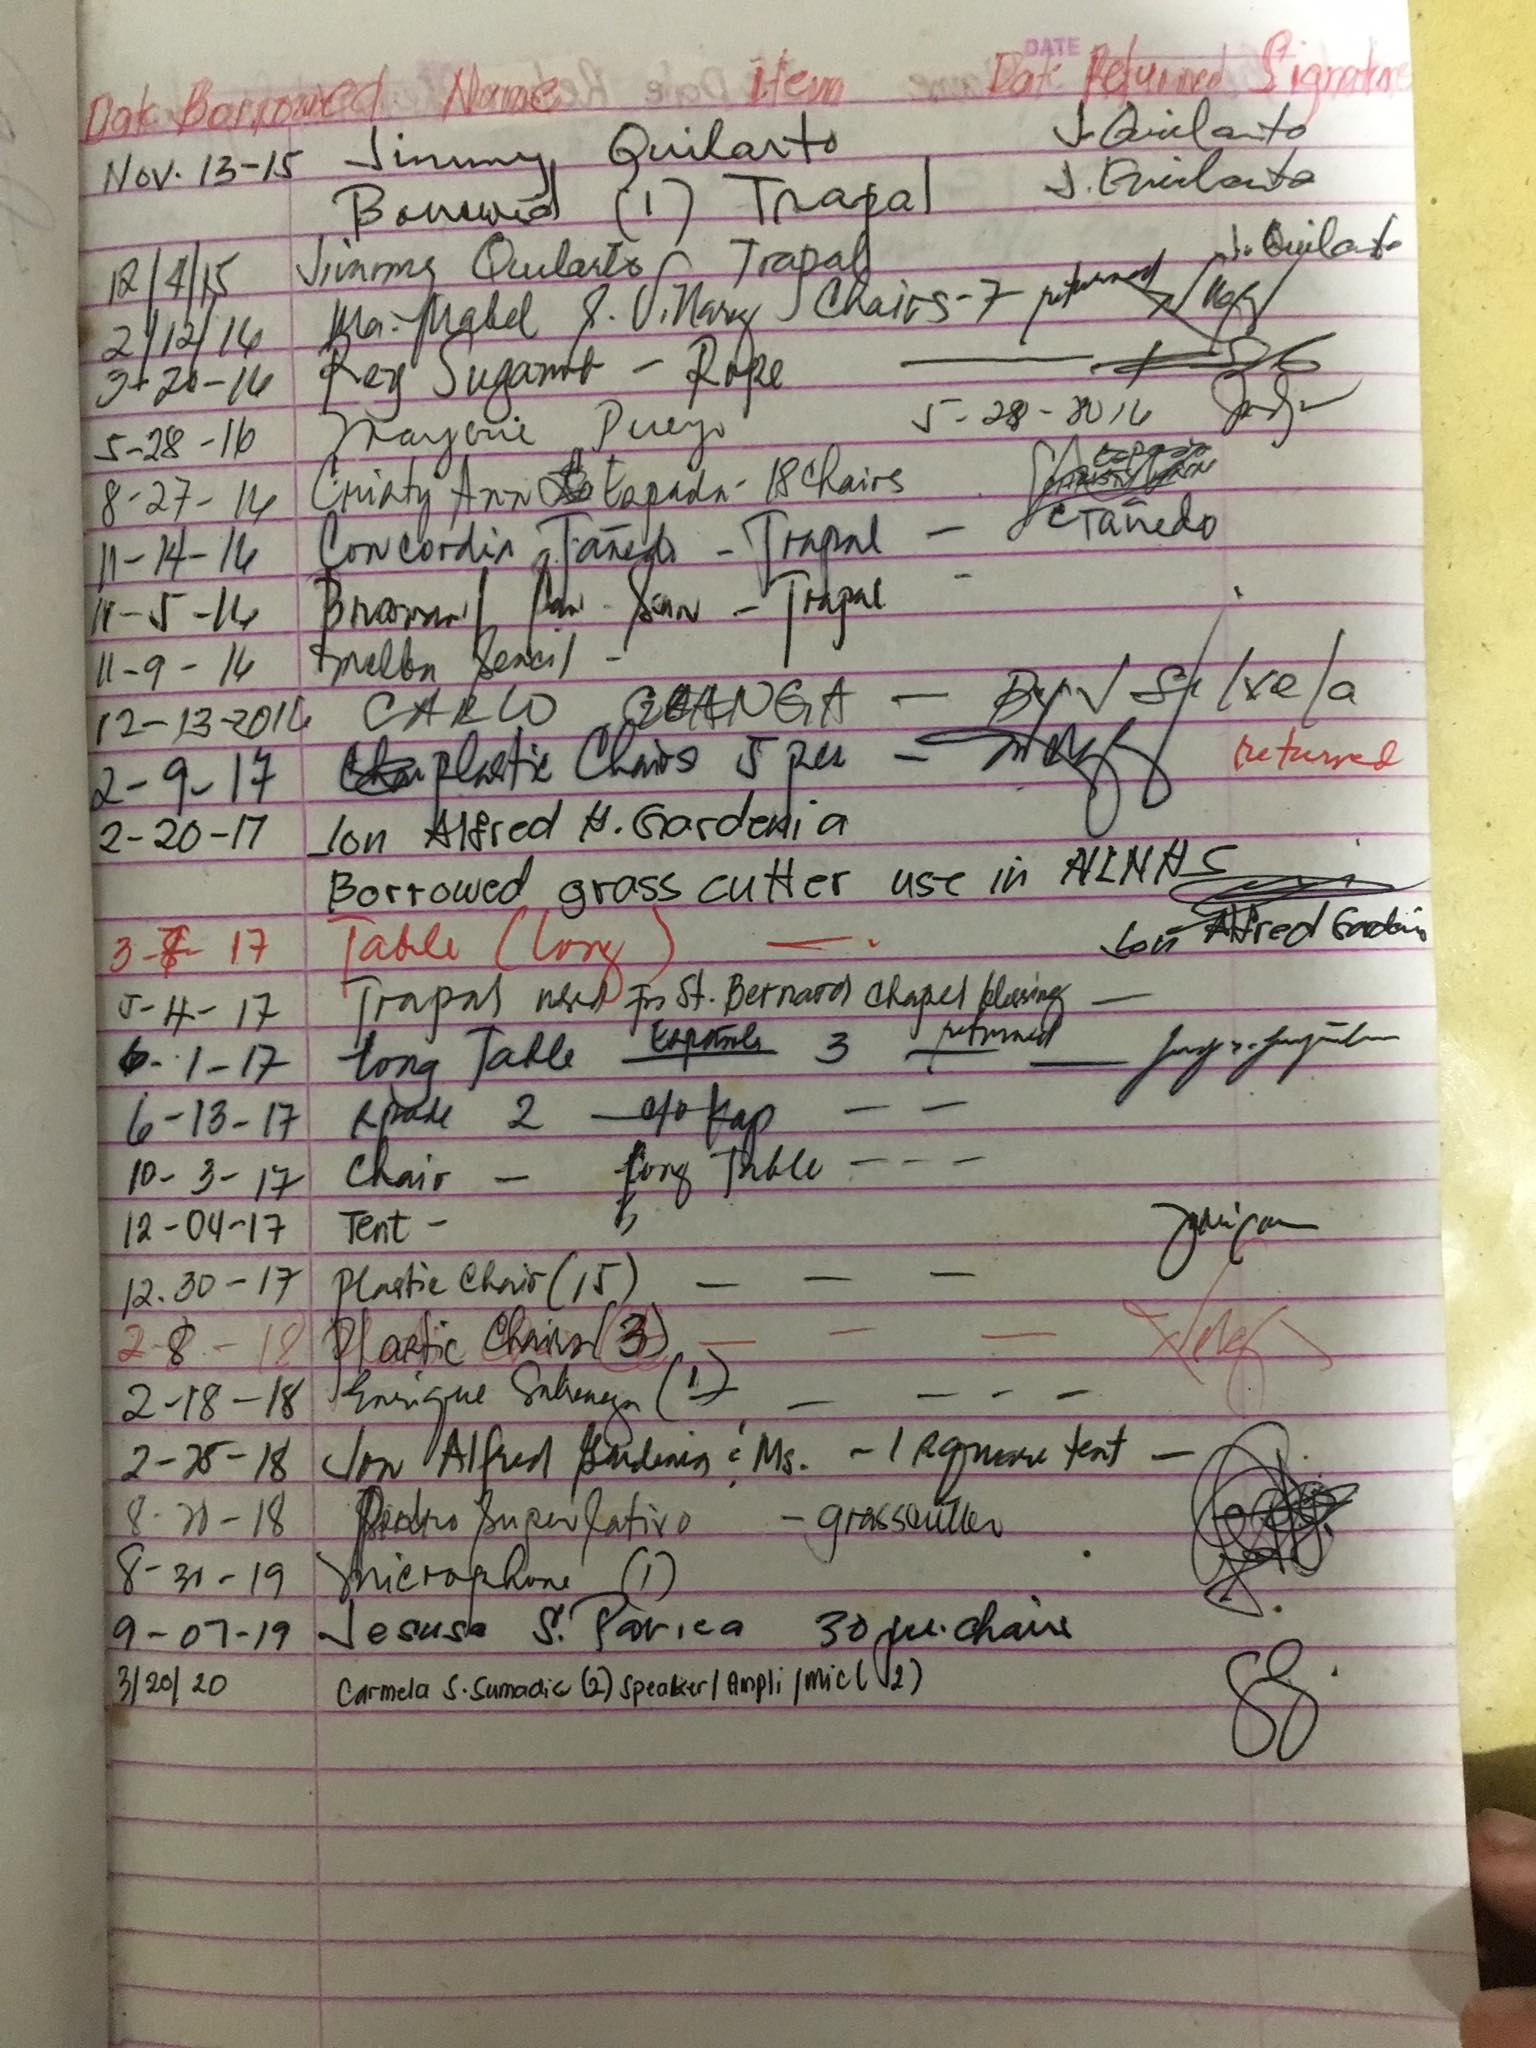 DATE
Date Borrowed Name Item Date Returned Signature
Nov. 13-15 Jimmy Quilanto J. Quilanto
Borrowed (1) Trapal J. Quilanto
12/4/15 Jimmy Quilanto Trapal J. Quilanto
2/12/16 Ma. Mabel S. Villaruz Chairs-7 returned
3-20-16 Rey Suganob - Rope
5-28-16 Marjorie Pueyo 5-28-2016
8-27-16 Cristy Ann Estapada - 18 Chairs
11-14-16 Concordia Tañedo - Trapal - CTañedo
11-5-16 - Trapal
11-9-16 Melba
12-13-2016 CARLO
2-9-17 plastic Chairs 5 pcs - returned
2-20-17 Jon Alfred H. Gardenia
Borrowed grass cutter use in ALNHS
Jon Alfred Gardenia
3- - 17 Table (long)
5-4-17 Trapal used for St. Bernard chapel blessing
6-1-17 Long Table 3 returned
6-13-17 2 - c/o Kap
10-3-17 Chair - Long Table
12-04-17 Tent -
12-30-17 Plastic Chair (15)
2-8-18 Plastic Chairs (3)
2-18-18 Enrique (1)
2-25-18 Jon Alfred Gardenia & Ms. - 1 square tent -
8-20-18 Pedro Superlativo - grasscutter
8-30-19 Microphone (1)
9-07-19 Jesusa S. Parica 30 pc. chairs
3/20/20 Carmela S. Sumadic (2) speaker/Ampli/mic (2)